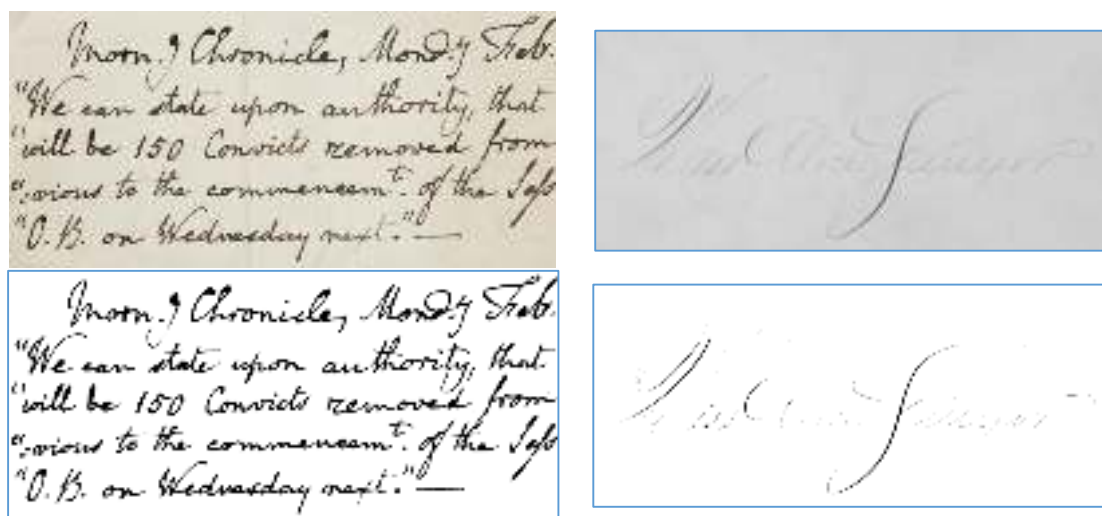 Morn.g Chronicle, Mond.y Feb.
"We can state upon authority, that
"will be 150 Convicts removed from
"vious to the commencem.t of the Sess
"O.B. on Wednesday next."—
Morn.g Chronicle, Mond.y Feb.
"We can state upon authority, that
"will be 150 Convicts removed from
"vious to the commencem.t of the Sess
"O.B. on Wednesday next."—